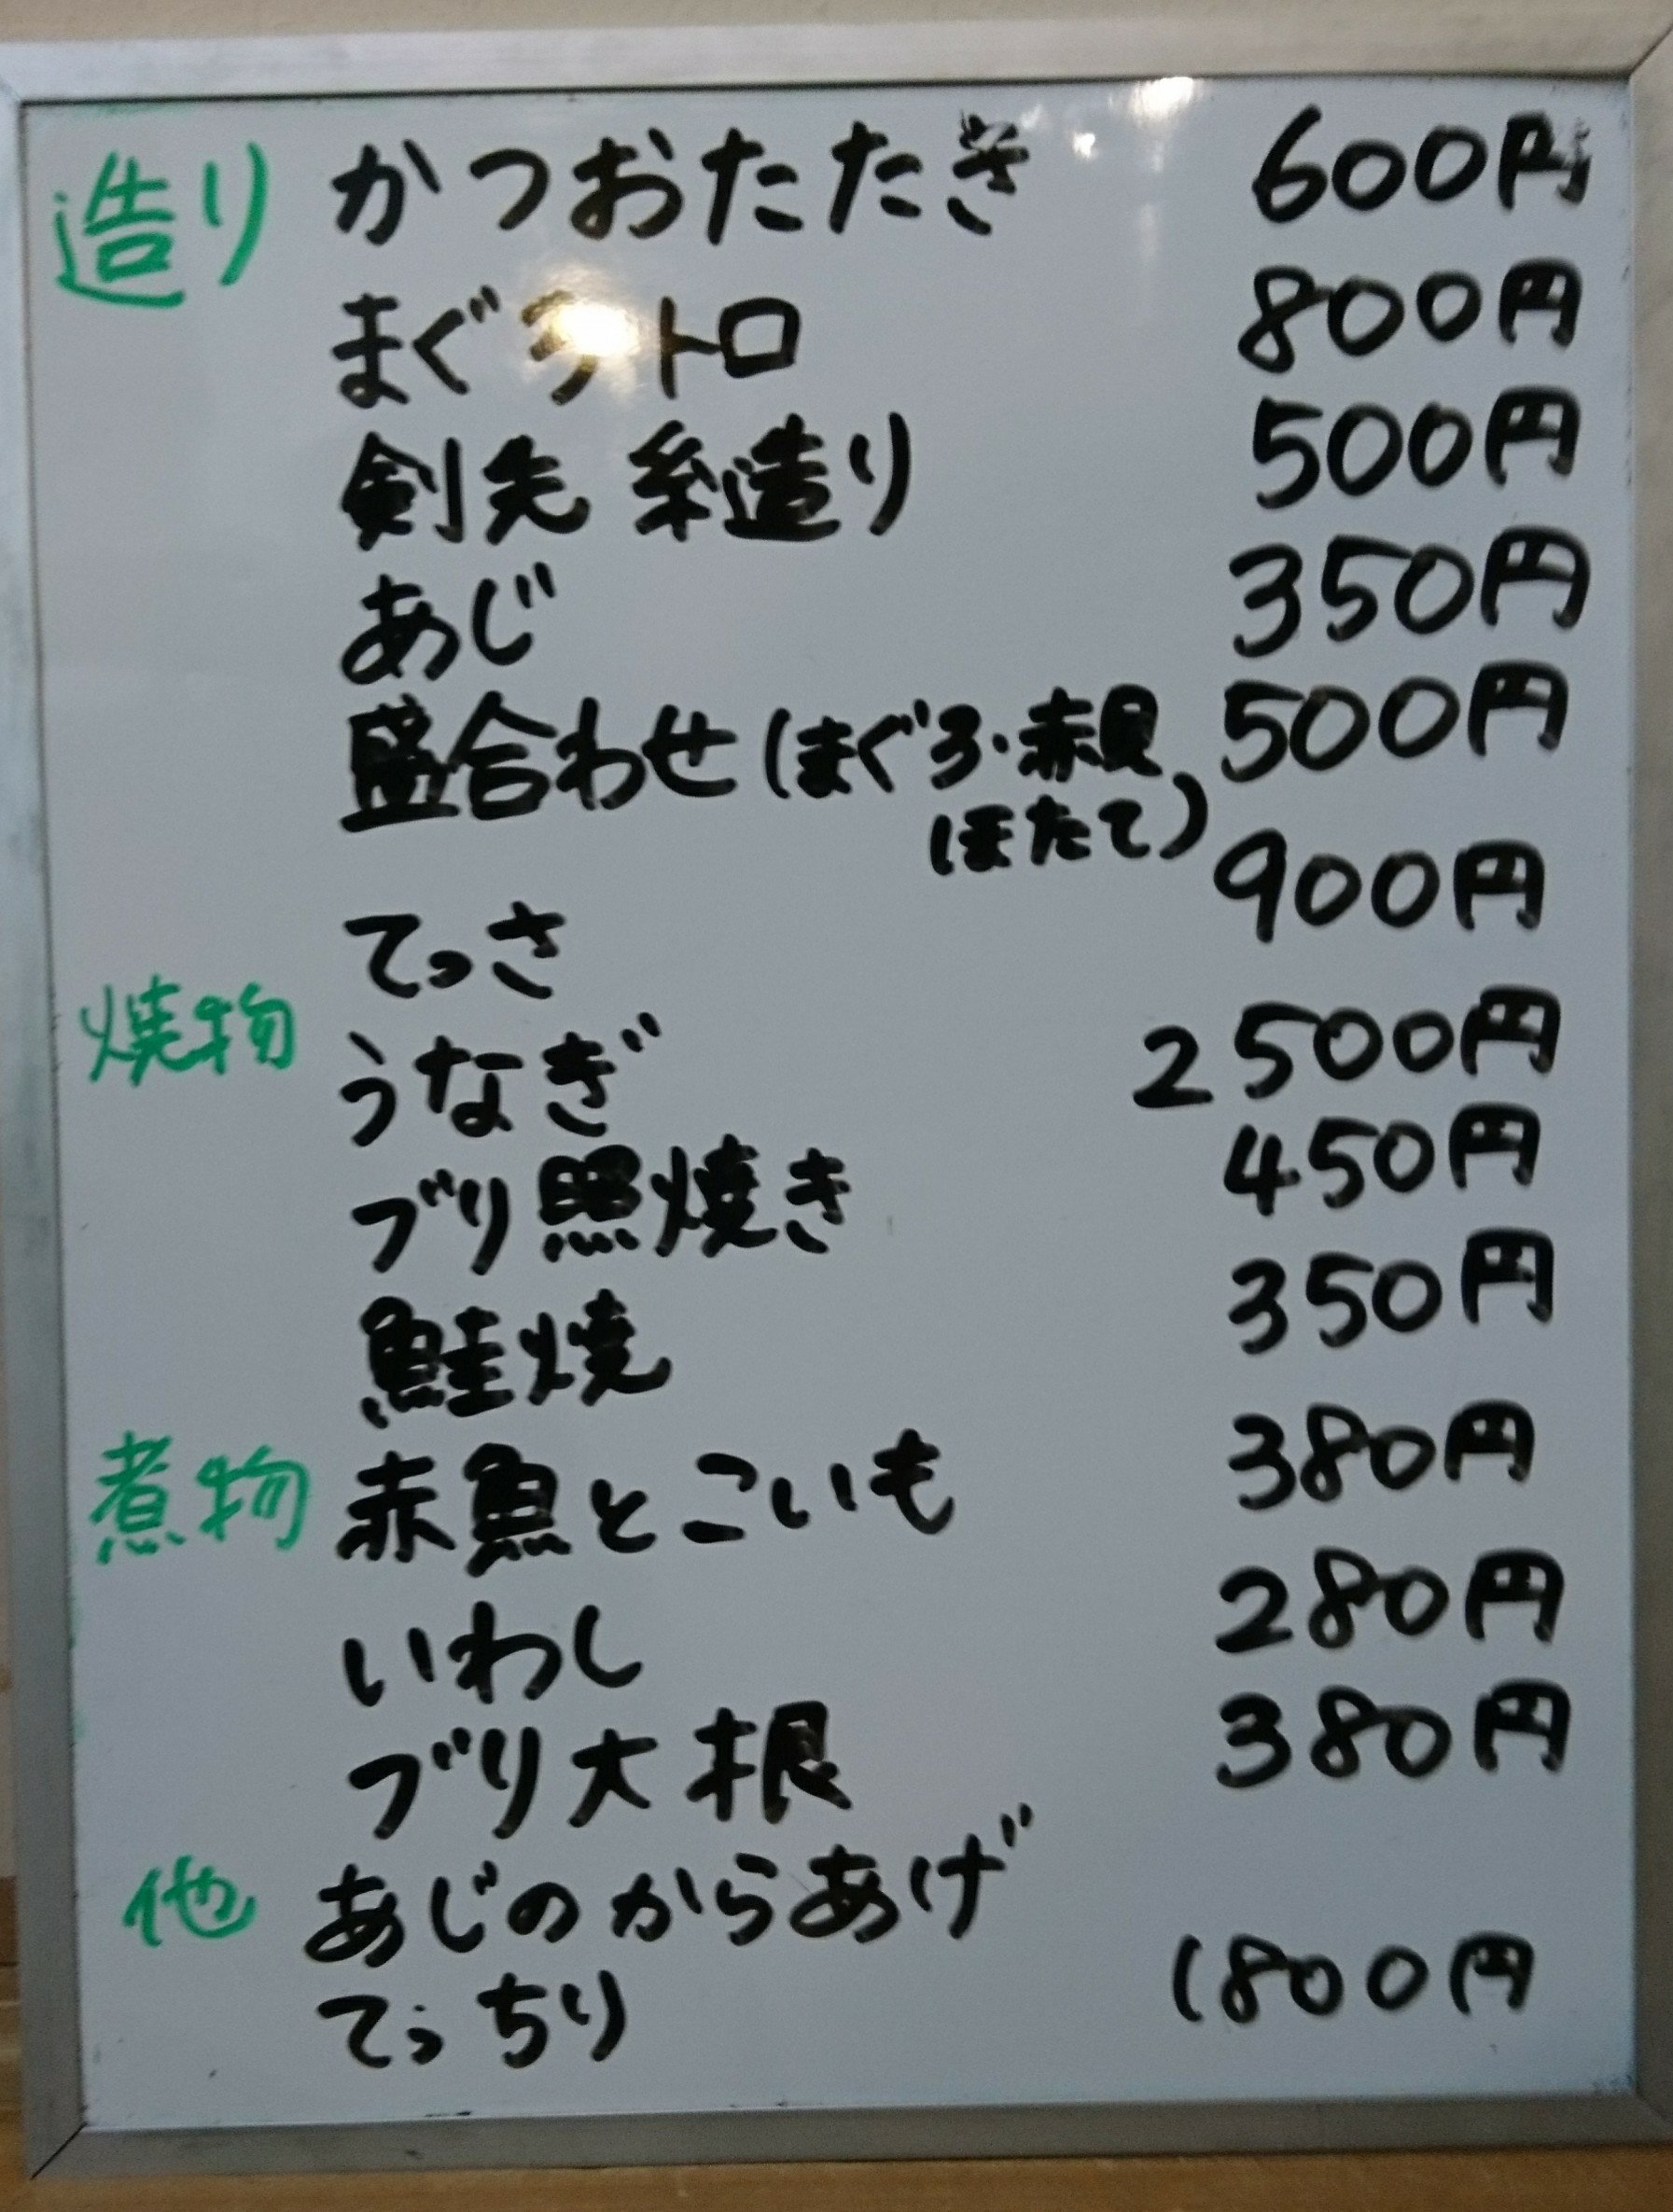 造り かつおたたき 600円
まぐろトロ 800円
剣先 糸造り 500円
あじ 350円
盛合わせ(まぐろ・赤貝 500円
ほたて)
てっさ 900円
焼物 うなぎ 2500円
ブリ照焼き 450円
鮭焼 350円
煮物 赤魚とこいも 380円
いわし 280円
ブリ大根 380円
他 あじのからあげ
てっちり 1800円